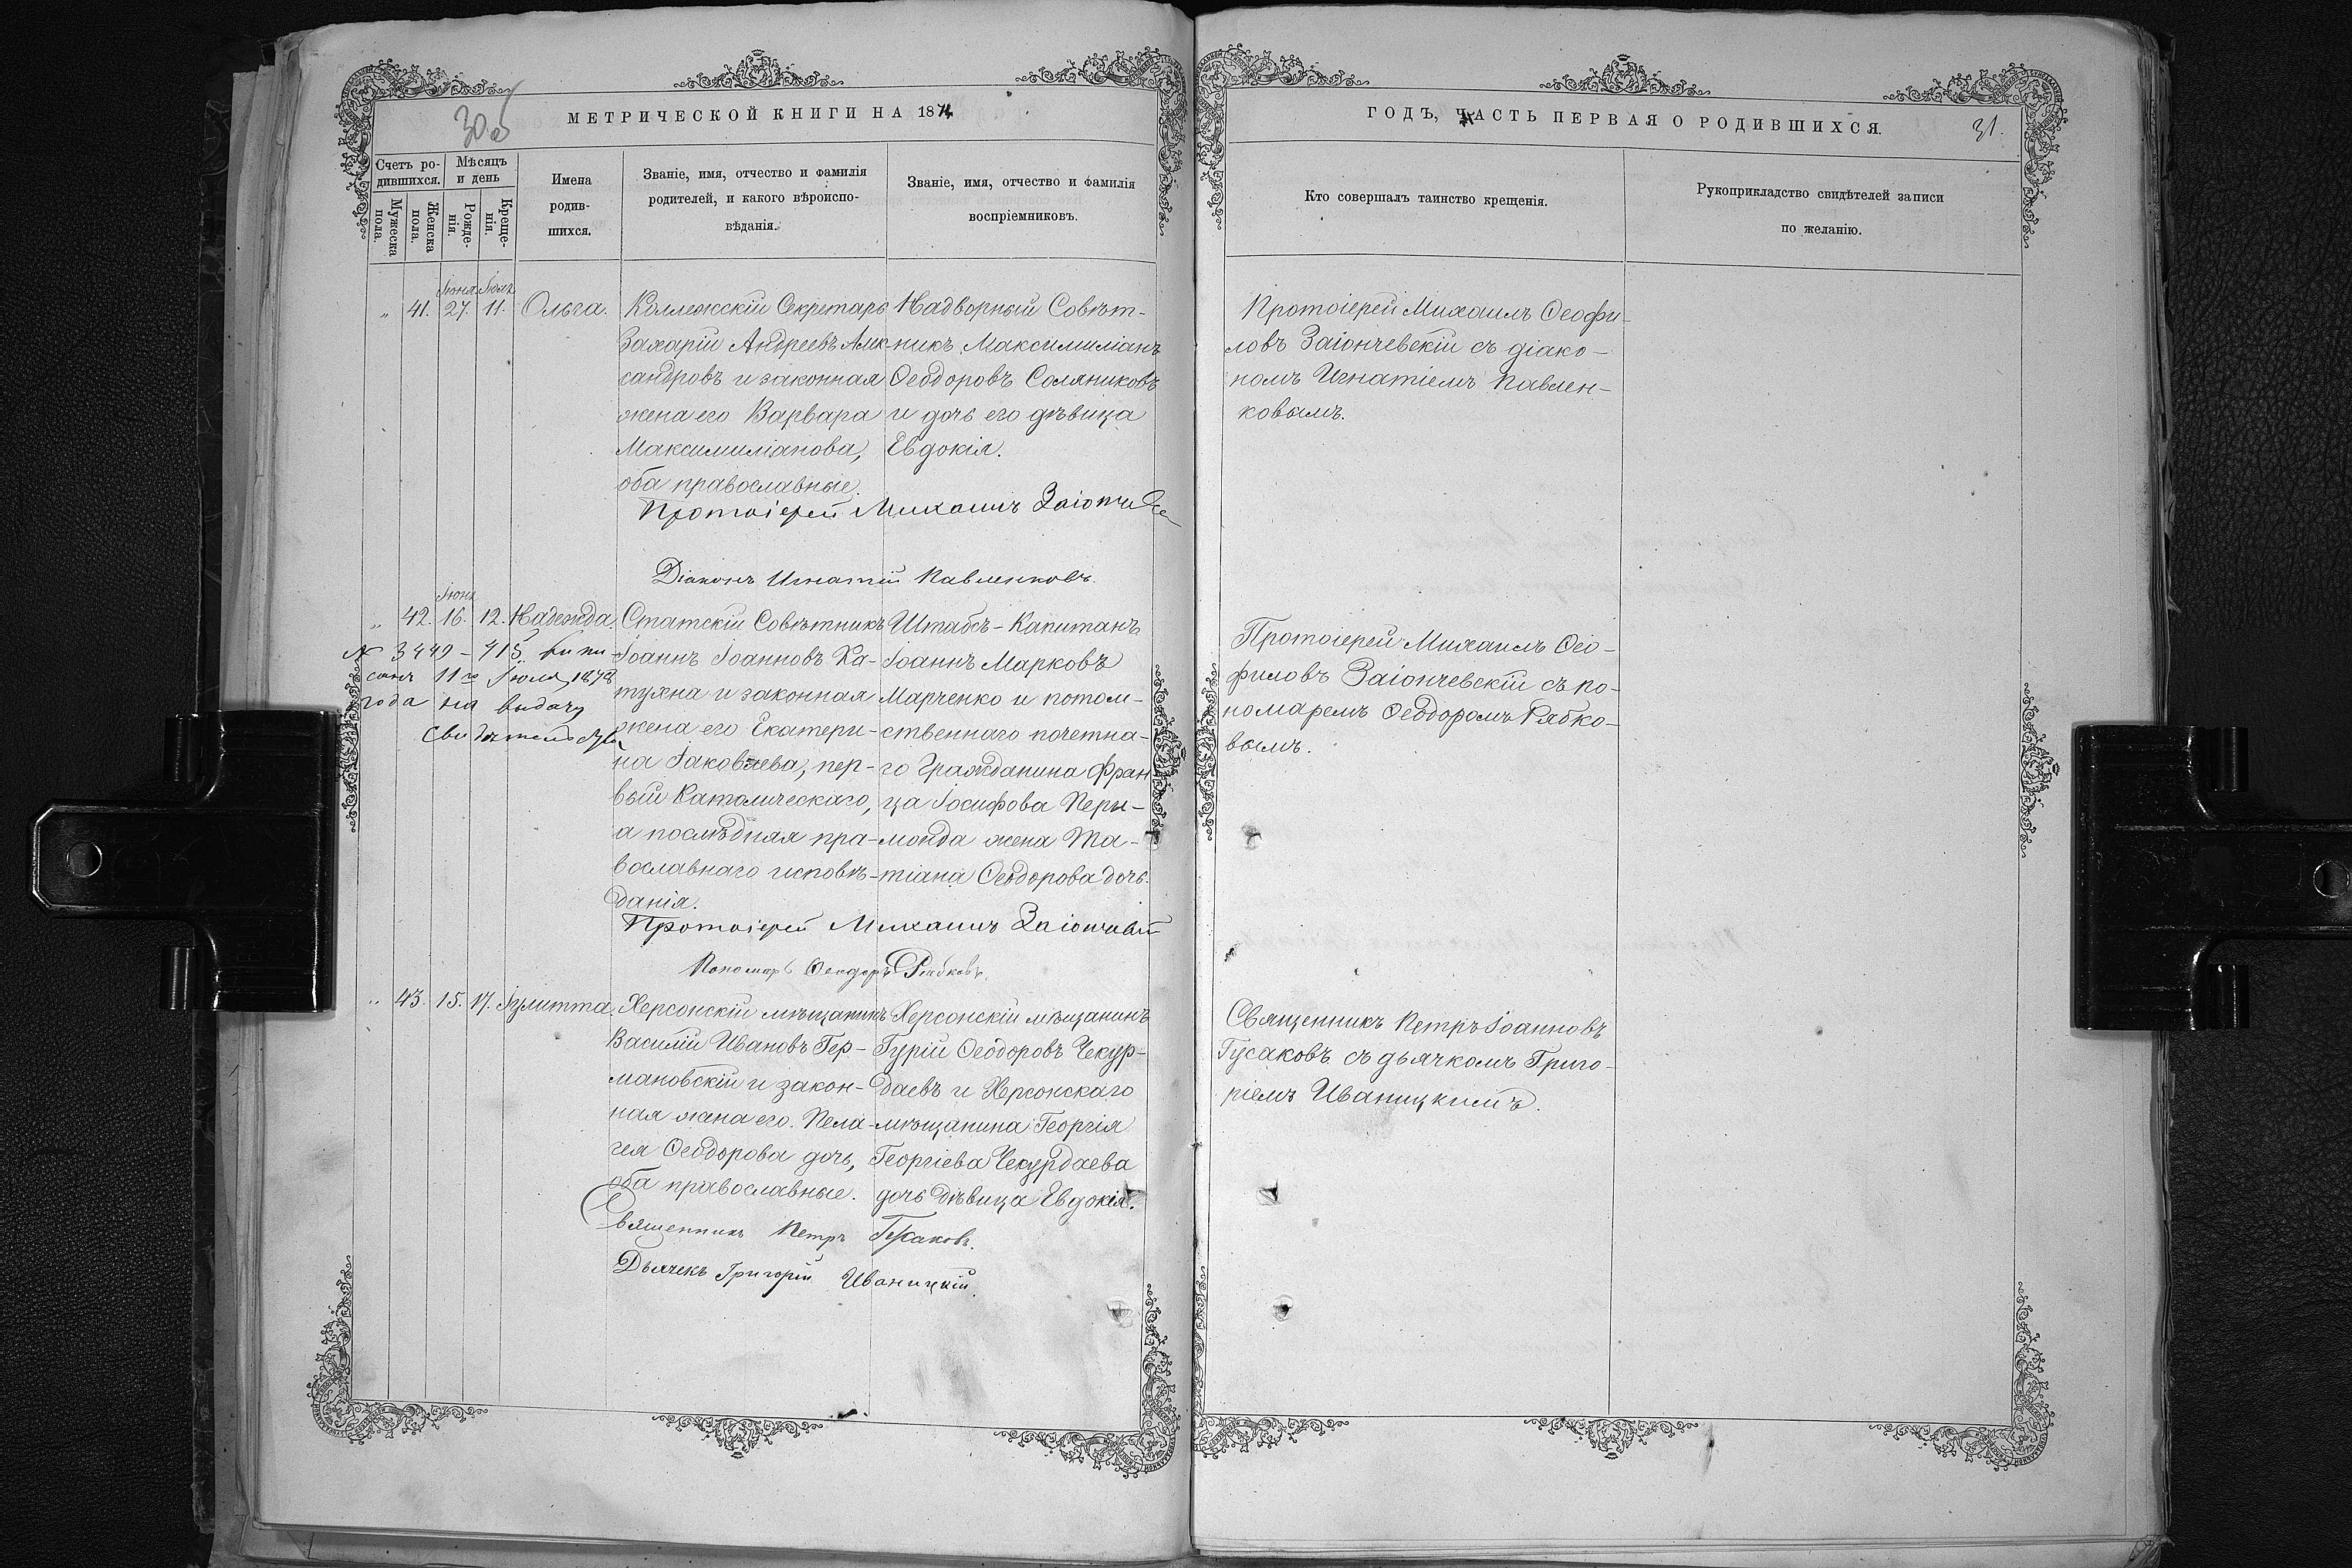 30об
МЕТРИЧЕСКОЙ КНИГИ НА 1874
Счетъ ро-
дившихся.
Мѣсяцъ
и день
Мужеска
пола.
Женска
пола.
Рожде-
нія.
Креще-
нія.
Имена
родив-
шихся.
Званіе, имя, отчество и фамилія
родителей, и какого вѣроиспо-
вѣданія.
Званіе, имя, отчество и фамилія
воспріемниковъ.
Іюня Іюля
" 41. 27. 11. Ольга.
Коллежскій Секретарь
Захарій Андреевъ Алек-
сандровъ и законная
жена его Варвара
Максимиліанова,
оба православные.
Надворный Совѣт-
никъ Максимиліанъ
Ѳеодоровъ Соляниковъ
и дочь его дѣвица
Евдокія.
Протоіерей Михаилъ
Діаконъ Игнатій Павленковъ.
Іюня
" 42. 16. 12. Надежда.
№ 3449 - 715.
11го Іюля 1878
года на выдачу
Свидѣтельства
Статскій Совѣтникъ
Іоаннъ Іоанновъ Ка-
туяна и законная
жена его Екатери-
на Іаковлева, пер-
вый Католическаго,
а послѣдняя пра-
вославнаго исповѣ-
данія.
Штабсъ-Капитанъ
Іоаннъ Марковъ
Марченко и потом-
ственнаго почетна-
го Гражданина Фран
ца Іосифова Перы-
монда жена Та-
тіана Ѳеодорова дочь.
Протоіерей Михаилъ
Пономарь Ѳеодоръ Рябковъ.
" 43. 15. 17. Іулитта.
Херсонскій мѣщанинъ
Василій Ивановъ Гер-
мановскій и закон-
ная жена его Пела-
гея Ѳеодорова дочь,
оба православные.
Херсонскій мѣщанинъ
Гурій Ѳеодоровъ Чекур-
даевъ и Херсонскаго
мѣщанина Георгія
Георгіева Чекурдаева
дочь дѣвица Евдокія.
Священникъ Петръ Гусаковъ.
Дьячекъ Григорій Иваницкій.
ГОДЪ, ЧАСТЬ ПЕРВАЯ О РОДИВШИХСЯ.
31.
Кто совершалъ таинство крещенія.
Рукоприкладство свидѣтелей записи
по желанію.
Протоіерей Михаилъ Ѳеофи-
ловъ Заіончевскій съ діако-
номъ Игнатіемъ Павлен-
ковымъ.
Протоіерей Михаилъ Ѳео-
филовъ Заіончевскій съ по-
номаремъ Ѳеодоромъ Рябко-
вымъ.
Священникъ Петръ Іоанновъ
Гусаковъ съ дьячкомъ Григо-
ріемъ Иваницкимъ.